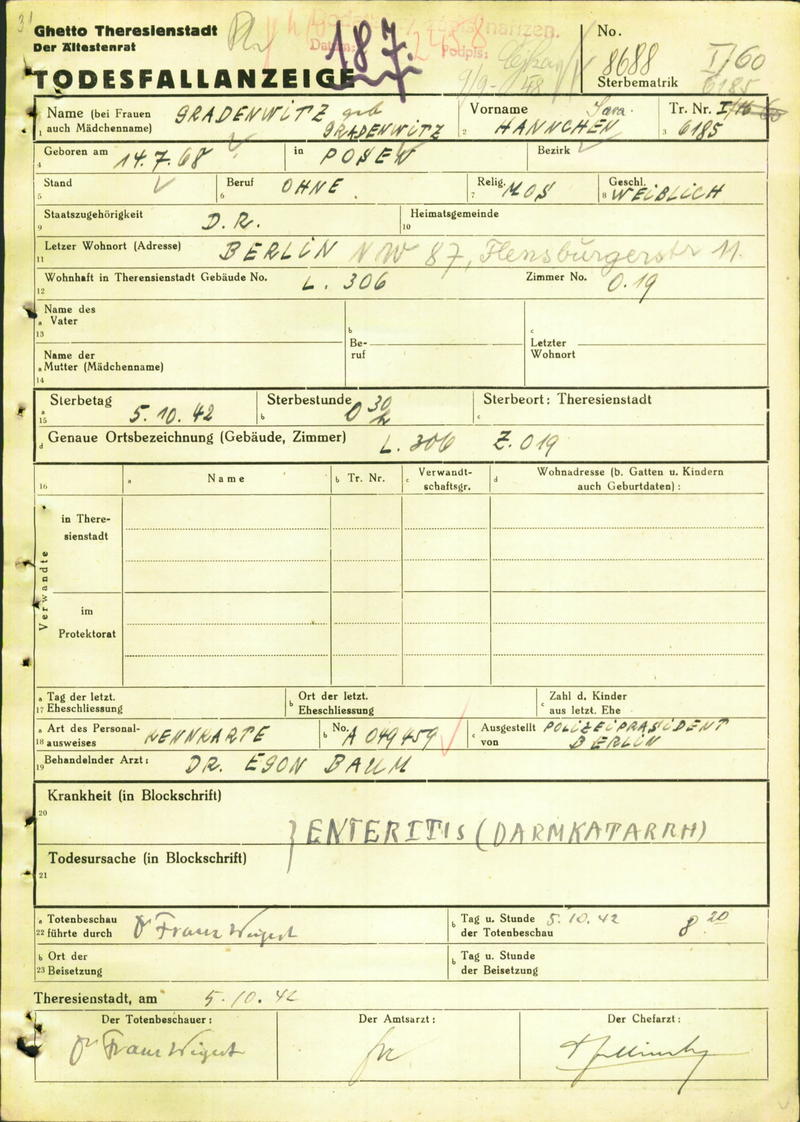 Ghetto Theresienstadt
Der Ältestenrat
TODESFALLANZEIGE
187.
Datum:
Podpis:
No.
8688
I/60
Sterbematrik
6185
Name (bei Frauen
1 auch Mädchenname)
GRADENWITZ geb
GRADENWITZ
Vorname
2
Sara
HANNCHEN
Tr. Nr.
3
6185
Geboren am
4
14.7.68
in POSEN
Bezirk
Stand
5
Beruf
6
OHNE
Relig.
7
MOS
Geschl.
8 WEIBLICH
Staatszugehörigkeit
9
D.R.
Heimatsgemeinde
10
Letzer Wohnort (Adresse)
11
BERLIN NW 87, Flensburgerstr 11.
Wohnhaft in Therensienstadt Gebäude No.
12
L. 306
Zimmer No.
0.19
Name des
a Vater
13
b
Be-
ruf
c
Letzter
Wohnort
Name der
a Mutter (Mädchenname)
14
Sterbetag
a
15
5.10.42
Sterbestunde
b
0 30 h
Sterbeort: Theresienstadt
c
d Genaue Ortsbezeichnung (Gebäude, Zimmer)
L. 306 Z. 019
16
a Name
b Tr. Nr.
c Verwandt-
schaftsgr.
d Wohnadresse (b. Gatten u. Kindern
auch Geburtdaten) :
Verwandte
in There-
sienstadt
im
Protektorat
a Tag der letzt.
17 Eheschliessung
b Ort der letzt.
Eheschliessung
c Zahl d. Kinder
aus letzt. Ehe
a Art des Personal-
18 ausweises
KENNKARTE
b No.
A 049459
c Ausgestellt
von
POLIZEIPRÄSIDENT
BERLIN
Behandelnder Arzt:
19
DR. EGON BAUM
Krankheit (in Blockschrift)
20
} ENTERITIS (DARMKATARRH)
Todesursache (in Blockschrift)
21
a Totenbeschau
22 führte durch
Dr Franz Weigert
b Tag u. Stunde
der Totenbeschau
5.10.42 8.20
b Ort der
23 Beisetzung
b Tag u. Stunde
der Beisetzung
Theresienstadt, am 5.10.42
Der Totenbeschauer:
Der Amtsarzt:
Der Chefarzt:
Dr Franz Weigert